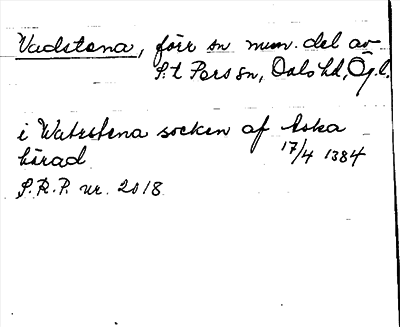 Vadstena, förr sn num. del av
S:t Pers sn, Dals hd, Ög.l.
i Watzstena socken af Aska
härad 17/4 1384
S.R.P. nr. 2018